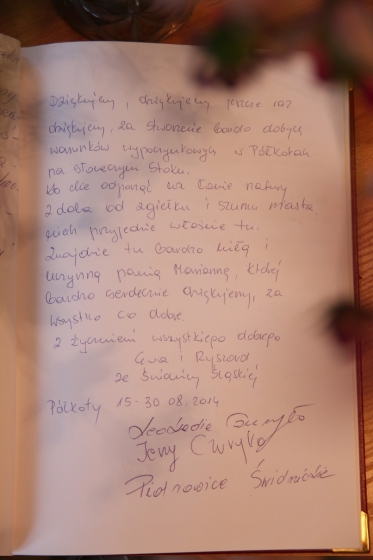 Dziękujemy, dziękujemy jeszcze raz
dziękujemy, za stworzenie bardzo dobrych
warunków wypoczynkowych w Półkotach
na słonecznym Stoku.
Kto chce odpocząć na łonie natury
z dala od zgiełku i szumu miasta
niech przyjedzie właśnie tu.
Znajdzie tu bardzo miłą i
uczynną panią Mariannę, której
bardzo serdecznie dziękujemy, za
wszystko co dobre.
Z życzeniami wszystkiego dobrego
Ewa i Ryszard
ze Świdnicy Śląskiej
Półkoty 15-30 08.2014
Leokadia
Jerzy
Piotrowice Świdnickie